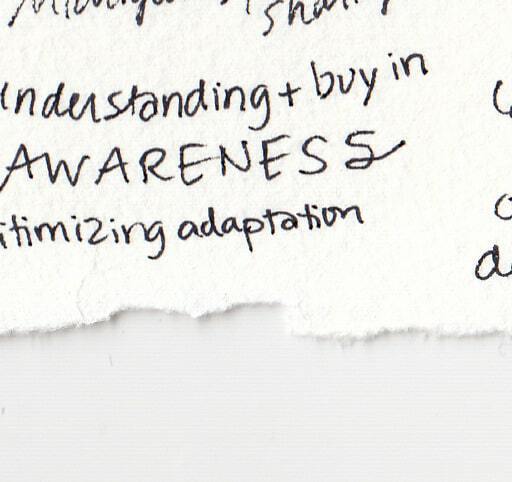 understanding + buy in
AWARENESS
itimizing adaptation